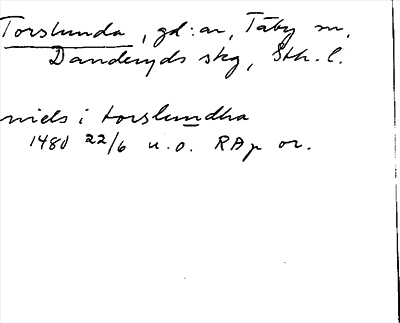 Torslunda, gd:ar, Täby sn,
Danderyds skg, Sth. l.
niels i torslundha
1480 22/6 u.o. RAp or.